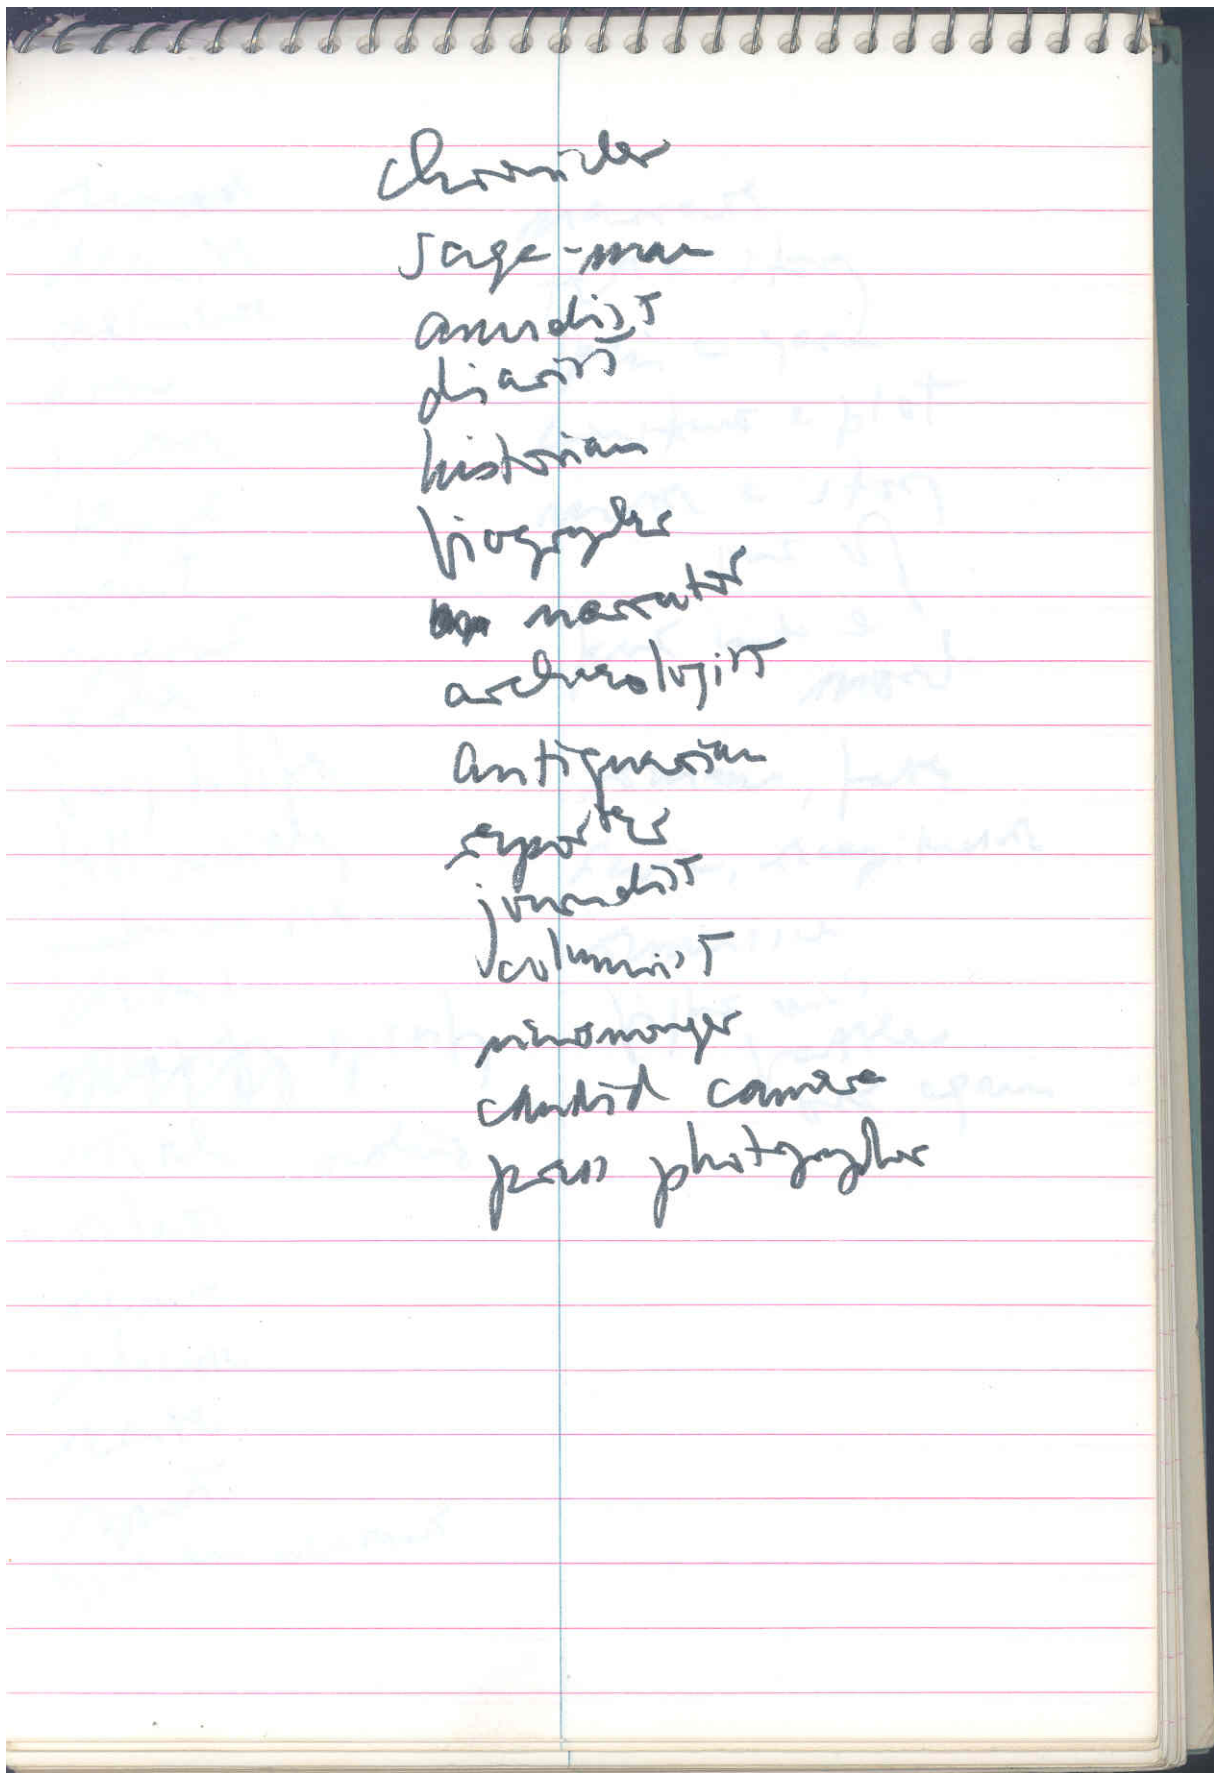 chronicler
saga-man
annalist
diarist
historian
biographer
narrator
archeologist
antiquarian
reporter
journalist
columnist
candid camera
press photographer